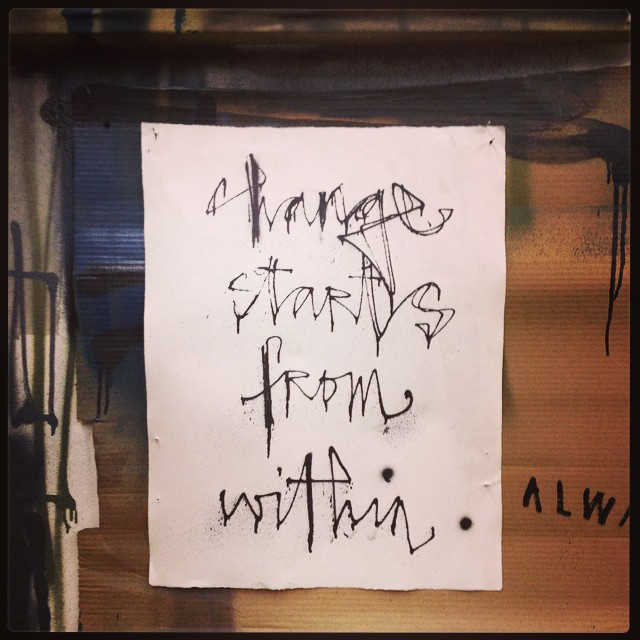 change
starts
from
within
ALWA